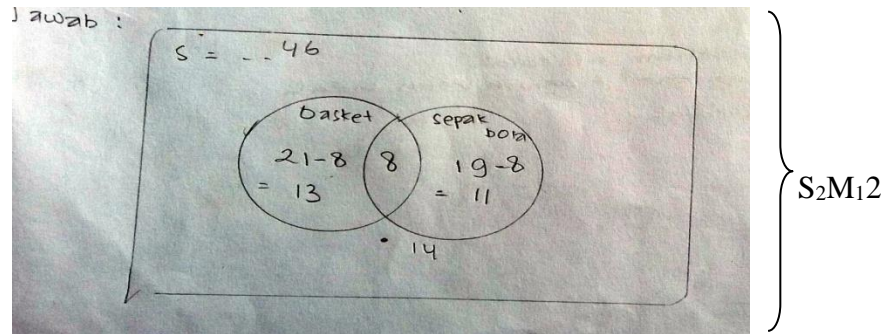 Jawab :
S = . . 46
basket sepak
bola
21-8 8 19-8
= 13 = 11
. 14
S₂M₁2